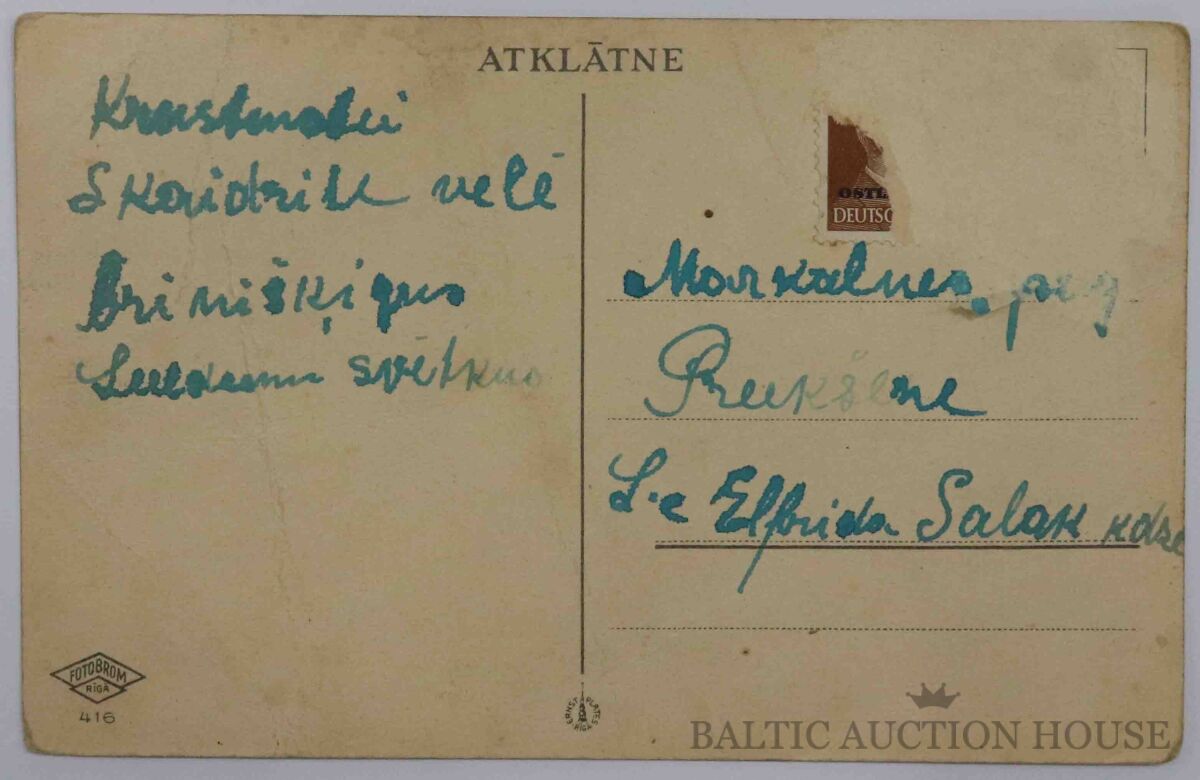 ATKLĀTNE
Krustmatei
Skaidrite velē
Briniškigus
svētkus
OSTL
DEUTSC
Markalnes
Preekšlne
L-c Elfrida Salak kdze
FOTOBROM
RĪGĀ
416
ERNST PLATES RĪGĀ
BALTIC AUCTION HOUSE